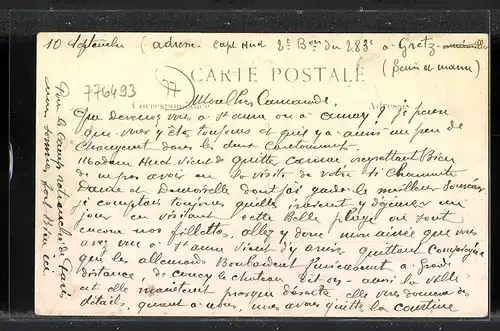 10 Septembre (adresse Capt Hud 2e Bon du 283e à Gretz
(Seine et marne)
776493
CARTE POSTALE
Correspondance
Adresse
Mon cher Camarade,
Que devenez vous à St anne ou à Je pense
que vous y êtes toujours et qu'il y a aussi un peu de
changement dans les deux Cantonnements.
Madame Hud vient de quitter regrettant Bien
de ne pas avoir eu la visite de votre si Charmante
Dame et Demoiselle dont j'ai gardé le meilleur Souvenir
je comptais toujours qu'elles iraient y déjeuner un
jour en visitant cette Belle plage où sont
encore nos fillettes, allez y donc mon aînée que vous
avez vue à St anne vient d'y arriver quittant Compiègne
que les allemands Bombardent furieusement à Grande
distance, de coucy le chateau dit on - aussi la ville
est elle maintenant presque déserte, elle vous donnera des
détails, quant à nous, nous avons quitté la
Pour le camp retranché de Paris
nous sommes fort Bien ici